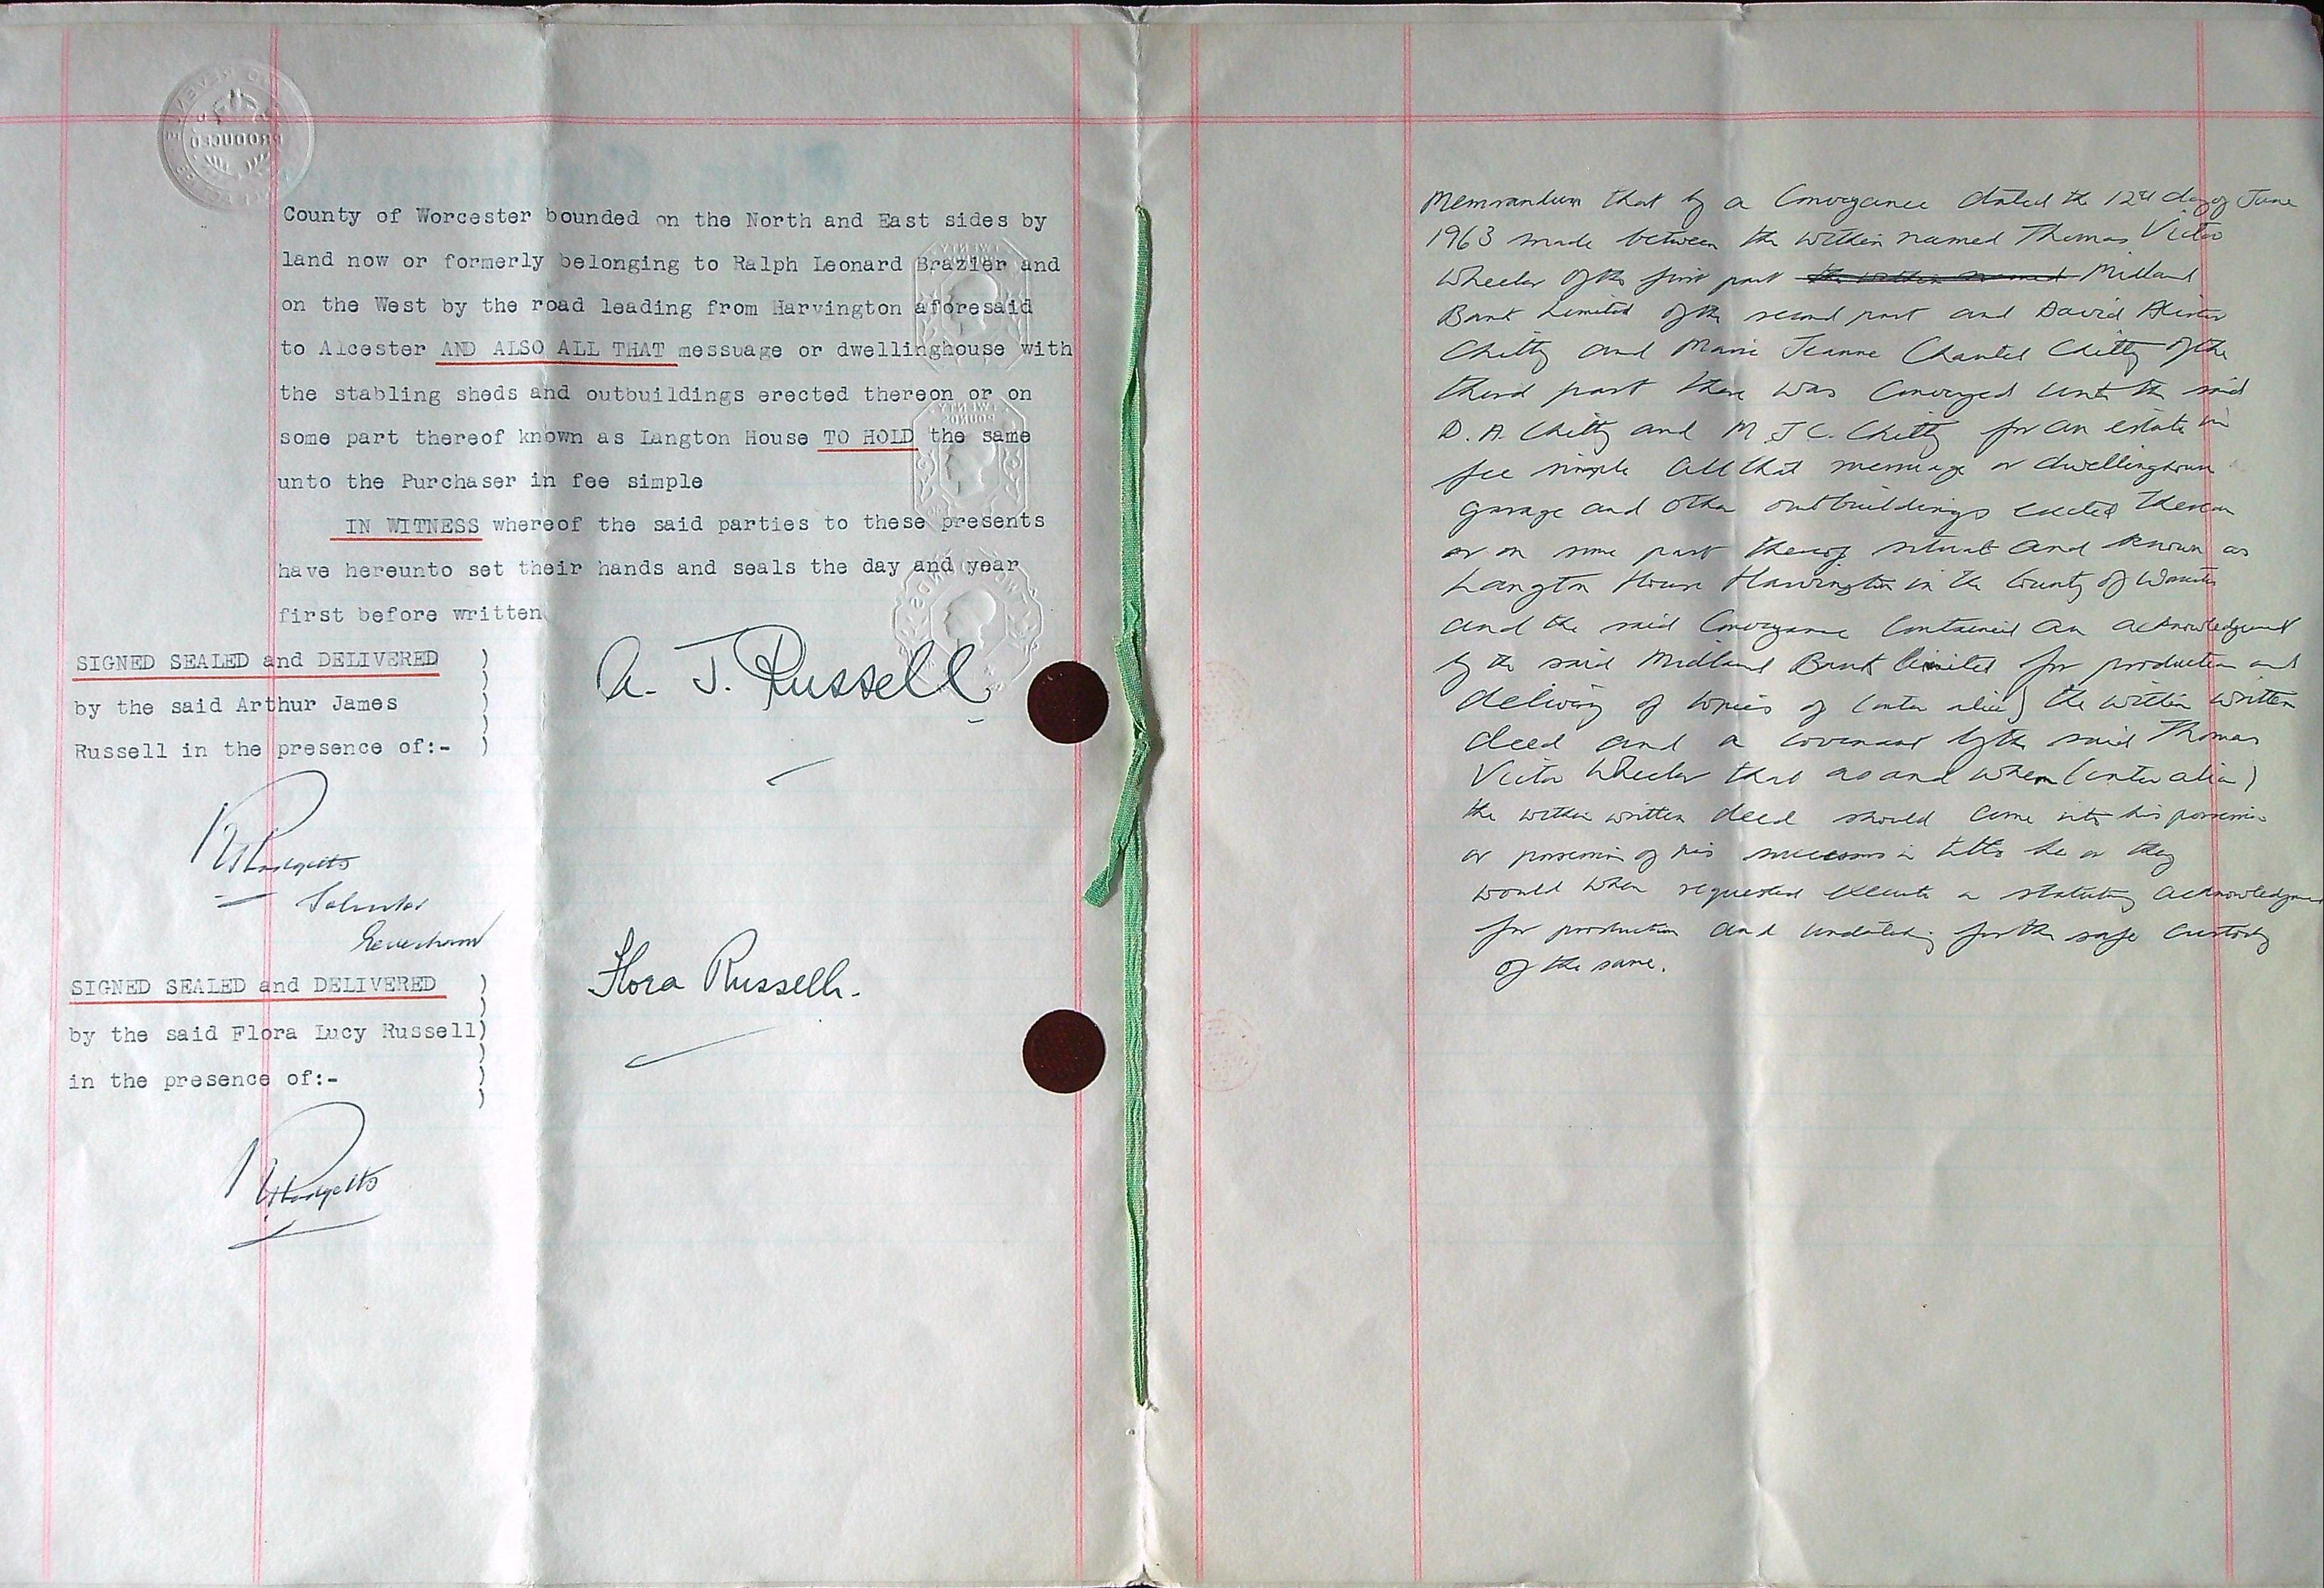 County of Worcester bounded on the North and East sides by
land now or formerly belonging to Ralph Leonard Brazier and
on the West by the road leading from Harvington aforesaid
to Alcester AND ALSO ALL THAT messuage or dwellinghouse with
the stabling sheds and outbuildings erected thereon or on
some part thereof known as Langton House TO HOLD the same
unto the Purchaser in fee simple
IN WITNESS whereof the said parties to these presents
have hereunto set their hands and seals the day and year
first before written
SIGNED SEALED and DELIVERED )
by the said Arthur James )
Russell in the presence of:- )
A. J. Russell
Solicitor
Evesham
SIGNED SEALED and DELIVERED )
by the said Flora Lucy Russell)
in the presence of:- )
Flora Russell.
PRODUCED
TWENTY POUNDS
Memorandum that by a Conveyance dated the 12th day of June
1963 made between the within named Thomas Victor
Wheeler of the first part the within named Midland
Bank Limited of the second part and David
Chitty and Marie Jeanne Chantel Chitty of the
third part there was conveyed unto the said
D. A. Chitty and M J C. Chitty for an estate in
fee simple All that messuage or dwellinghouse
garage and other outbuildings erected thereon
or on some part thereof situate and known as
Langton House Harvington in the County of Worcester
and the said Conveyance contained an acknowledgment
by the said Midland Bank limited for production and
delivery of copies of (inter alia) the within written
deed and a covenant by the said Thomas
Victor Wheeler that as and when (inter alia)
the within written deed should come into his possession
or possession of his successors in title he or they
would when requested execute a statutory acknowledgment
for production and undertaking for the safe custody
of the same.